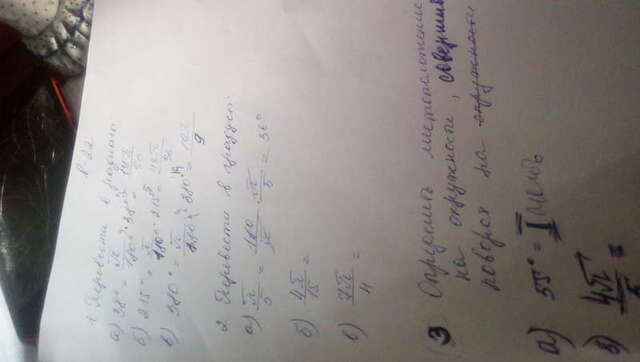 в-22
1. Перевести в радианы
а) 38° = π/180° · 38° = 19π/90
б) 215° = π/180° · 215° = 43π/36
в) 380° = π/180° · 380° 19 = 19π/9
2 Перевести в градусы.
а) π/5 = 180/π · π/5 = 36°
б) 4π/15 =
в) 7π/4 =
3 Определить местоположение
на окружности, совершив
поворот на окружности
а) 55° = I четь
в) 4π/5 =